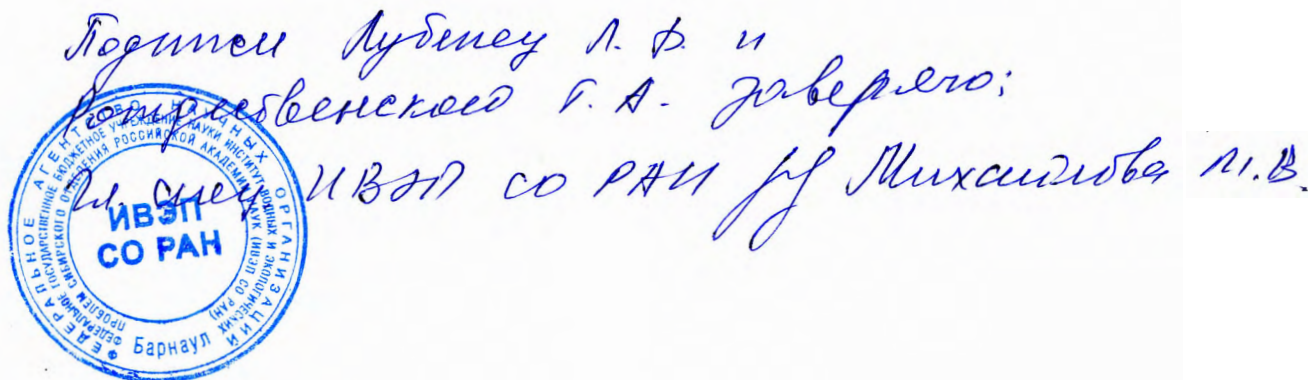 Подписи Лубенец Л. Ф. и
Рождественского Г. А. заверяю:
Гл. спец ИВЭП СО РАН Михайлова М. В.
ФЕДЕРАЛЬНОЕ АГЕНТСТВО НАУЧНЫХ ОРГАНИЗАЦИЙ
ФЕДЕРАЛЬНОЕ ГОСУДАРСТВЕННОЕ БЮДЖЕТНОЕ УЧРЕЖДЕНИЕ НАУКИ ИНСТИТУТ ВОДНЫХ И ЭКОЛОГИЧЕСКИХ
ПРОБЛЕМ СИБИРСКОГО ОТДЕЛЕНИЯ РОССИЙСКОЙ АКАДЕМИИ НАУК (ИВЭП СО РАН)
ИВЭП
СО РАН
Барнаул